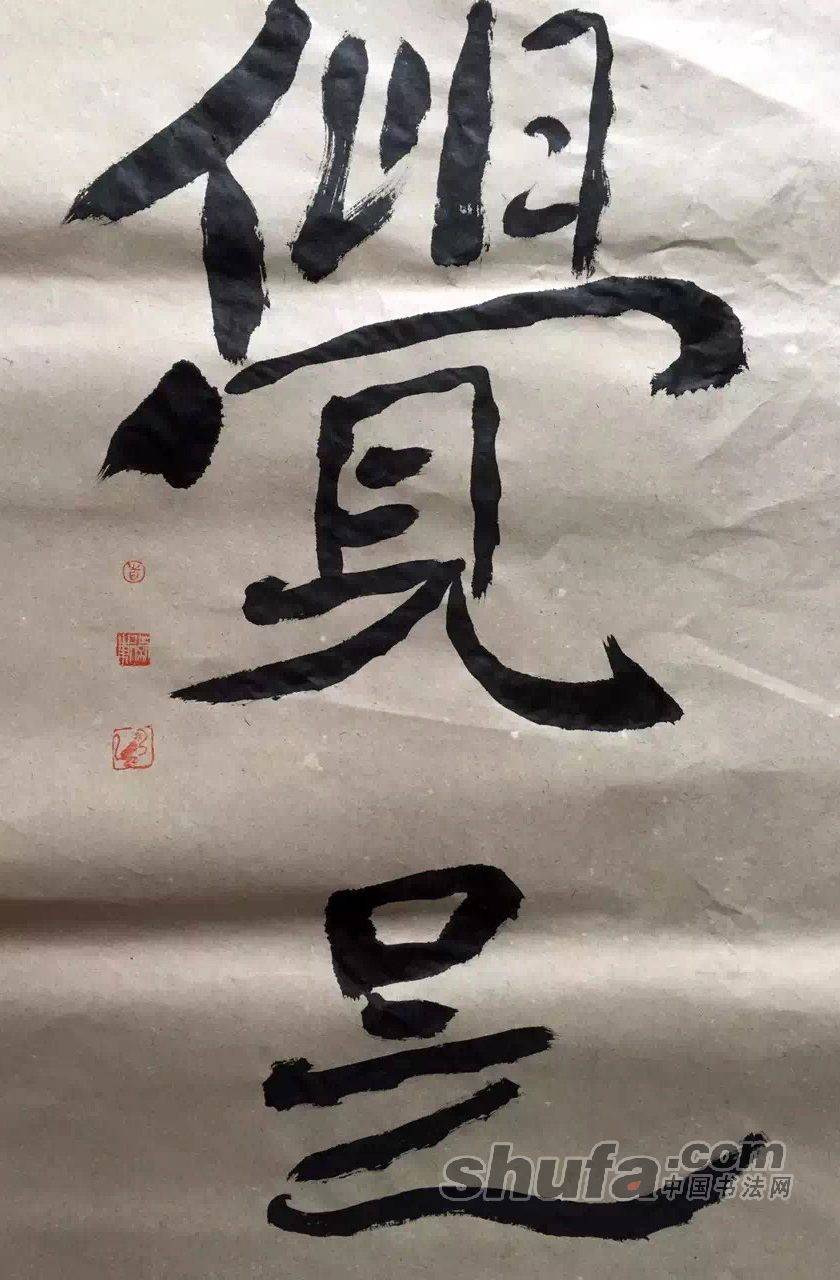 覺
是
shufa.com
中国书法网